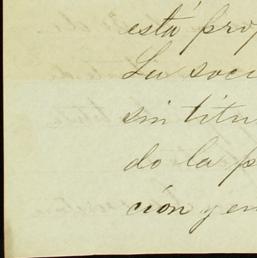 está prop
La soci
sin titu
do la p
ción y en